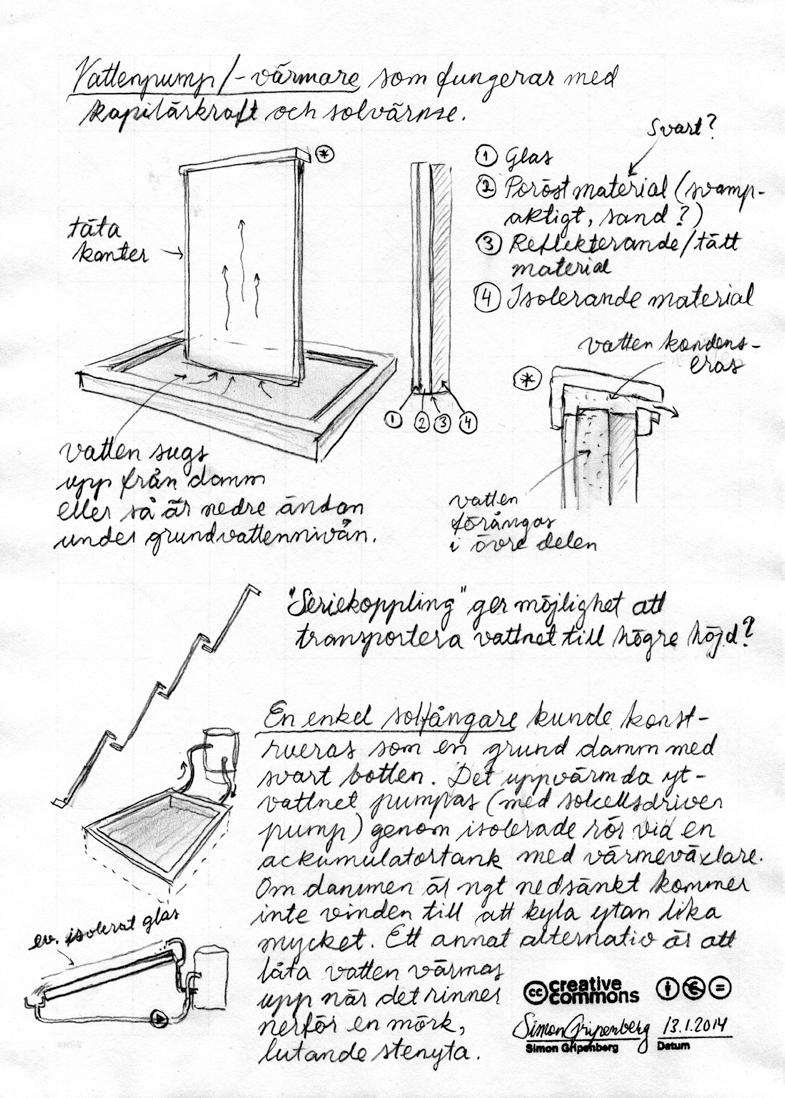 Vattenpump/-värmare som fungerar med
kapilärkraft och solvärme.
Svart?
*
täta
kanter
1 Glas
2 Poröst material (svamp-
aktigt, sand?)
3 Reflekterande/tätt
material
4 Isolerande material
1 2 3 4
*
vatten kondens-
eras
vatten sugs
upp från damm
eller så är nedre ändan
under grundvattennivån.
vatten
förångas
i övre delen
"Seriekoppling" ger möjlighet att
transportera vattnet till högre höjd?
En enkel solfångare kunde konst-
rueras som en grund damm med
svart botten. Det uppvärmda yt-
vattnet pumpas (med solcellsdriven
pump) genom isolerade rör vid en
ackumulatortank med värmeväxlare.
Om dammen är ngt nedsänkt kommer
inte vinden till att kyla ytan lika
mycket. Ett annat alternativ är att
låta vatten värmas
upp när det rinner
nerför en mörk,
lutande stenyta.
ev. isolerat glas
cc creative
commons
Simon Gripenberg 13.1.2014
Simon Gripenberg Datum